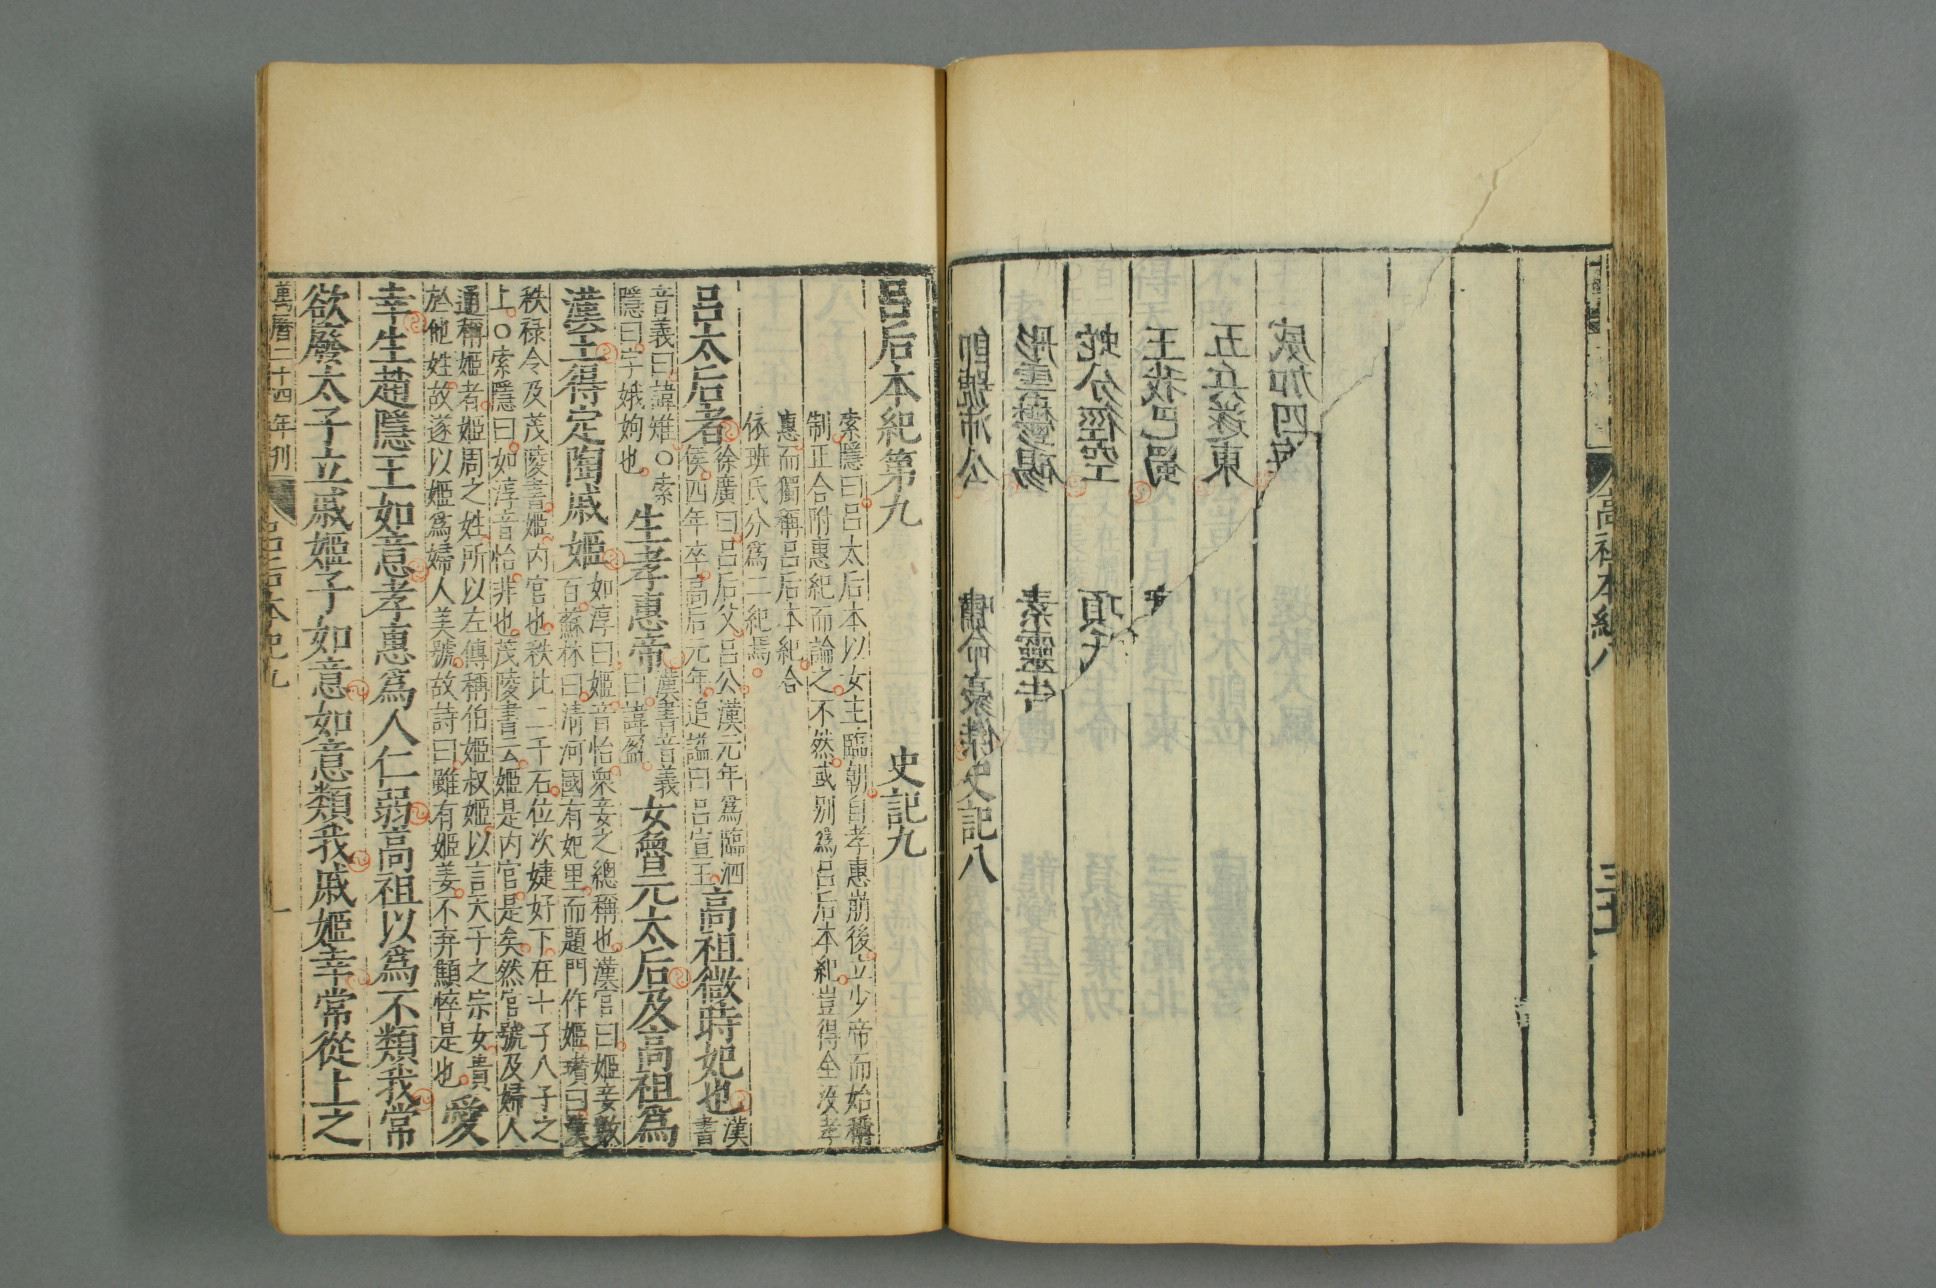 高祖本紀八
威加四海 還歌大風
五兵遂東 汜水即位 咸陽築宮
王我巴蜀 實憤于衷 三秦既北
蛇分徑空 項氏主命 負約棄功
彤雲鬱碭 素靈告豐 龍變星聚
即號沛公 嘯命豪傑 史記八
呂后本紀第九 史記九
索隱曰呂太后本以女主臨朝自孝惠崩後立少帝而始稱
制正合附惠紀而論之不然或别爲呂后本紀豈得全沒孝
惠而獨稱呂后本紀合
依班氏分爲二紀焉
呂太后者徐廣曰呂后父呂公漢元年爲臨泗侯四年卒高后元年追謚曰呂宣王高祖微時妃也漢書
音義曰諱雉○索隱曰字娥姁也生孝惠帝漢書音義曰諱盈女魯元太后及高祖爲
漢王得定陶戚姬如淳曰姬音怡衆妾之總稱也漢官曰姬妾數百蘇林曰清河國有妃里而題門作姬瓚曰漢
秩祿令及茂陵書姬内官也秩比二千石位次婕妤下在七子八子之
上○索隱曰如淳音怡非也茂陵書云姬是内官是矣然官號及婦人
通稱姬者姬周之姓所以左傳稱伯姬叔姬以言天子之宗女貴
於他姓故遂以姬爲婦人美號故詩曰雖有姬姜不弃顦悴是也愛
幸生趙隱王如意孝惠爲人仁弱高祖以爲不類我常
欲廢太子立戚姬子如意如意類我戚姬幸常從上之
萬曆二十四年刊 呂后本紀九 一